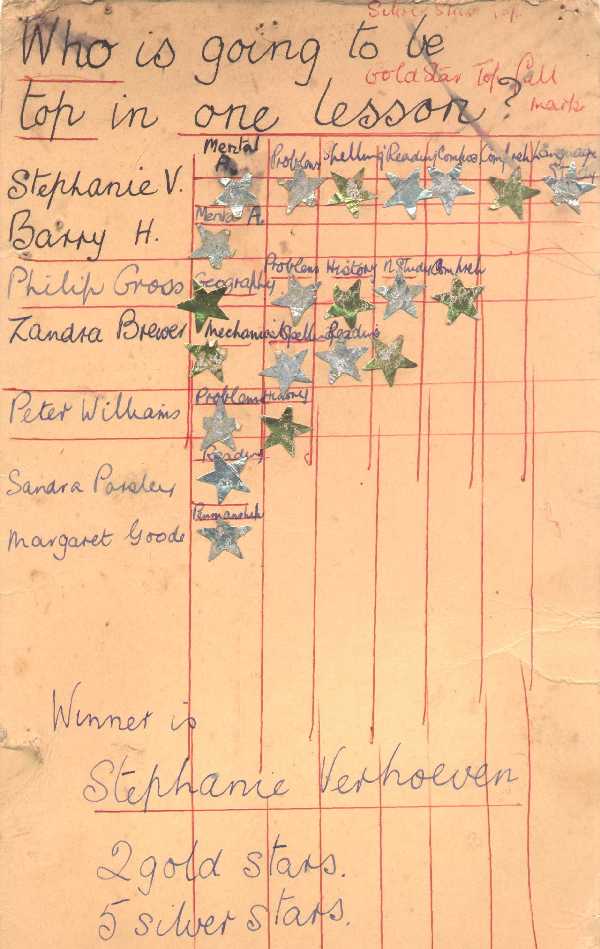 Silver Star Top
Who is going to be
Gold Star Top full
marks
top in one lesson?
Mental A. Problems Spelling Reading Compos Compreh Language
Stephanie V.
Mental A.
Barry H.
Geography Problems History N. Study Compreh
Philip Gross
Mechanical Spelling Reading
Zandra Brewer
Problems History
Peter Williams
Reading
Sandra Parsley
Penmanship
Margaret Goode
Winner is
Stephanie Verhoeven
2 gold stars.
5 silver stars.